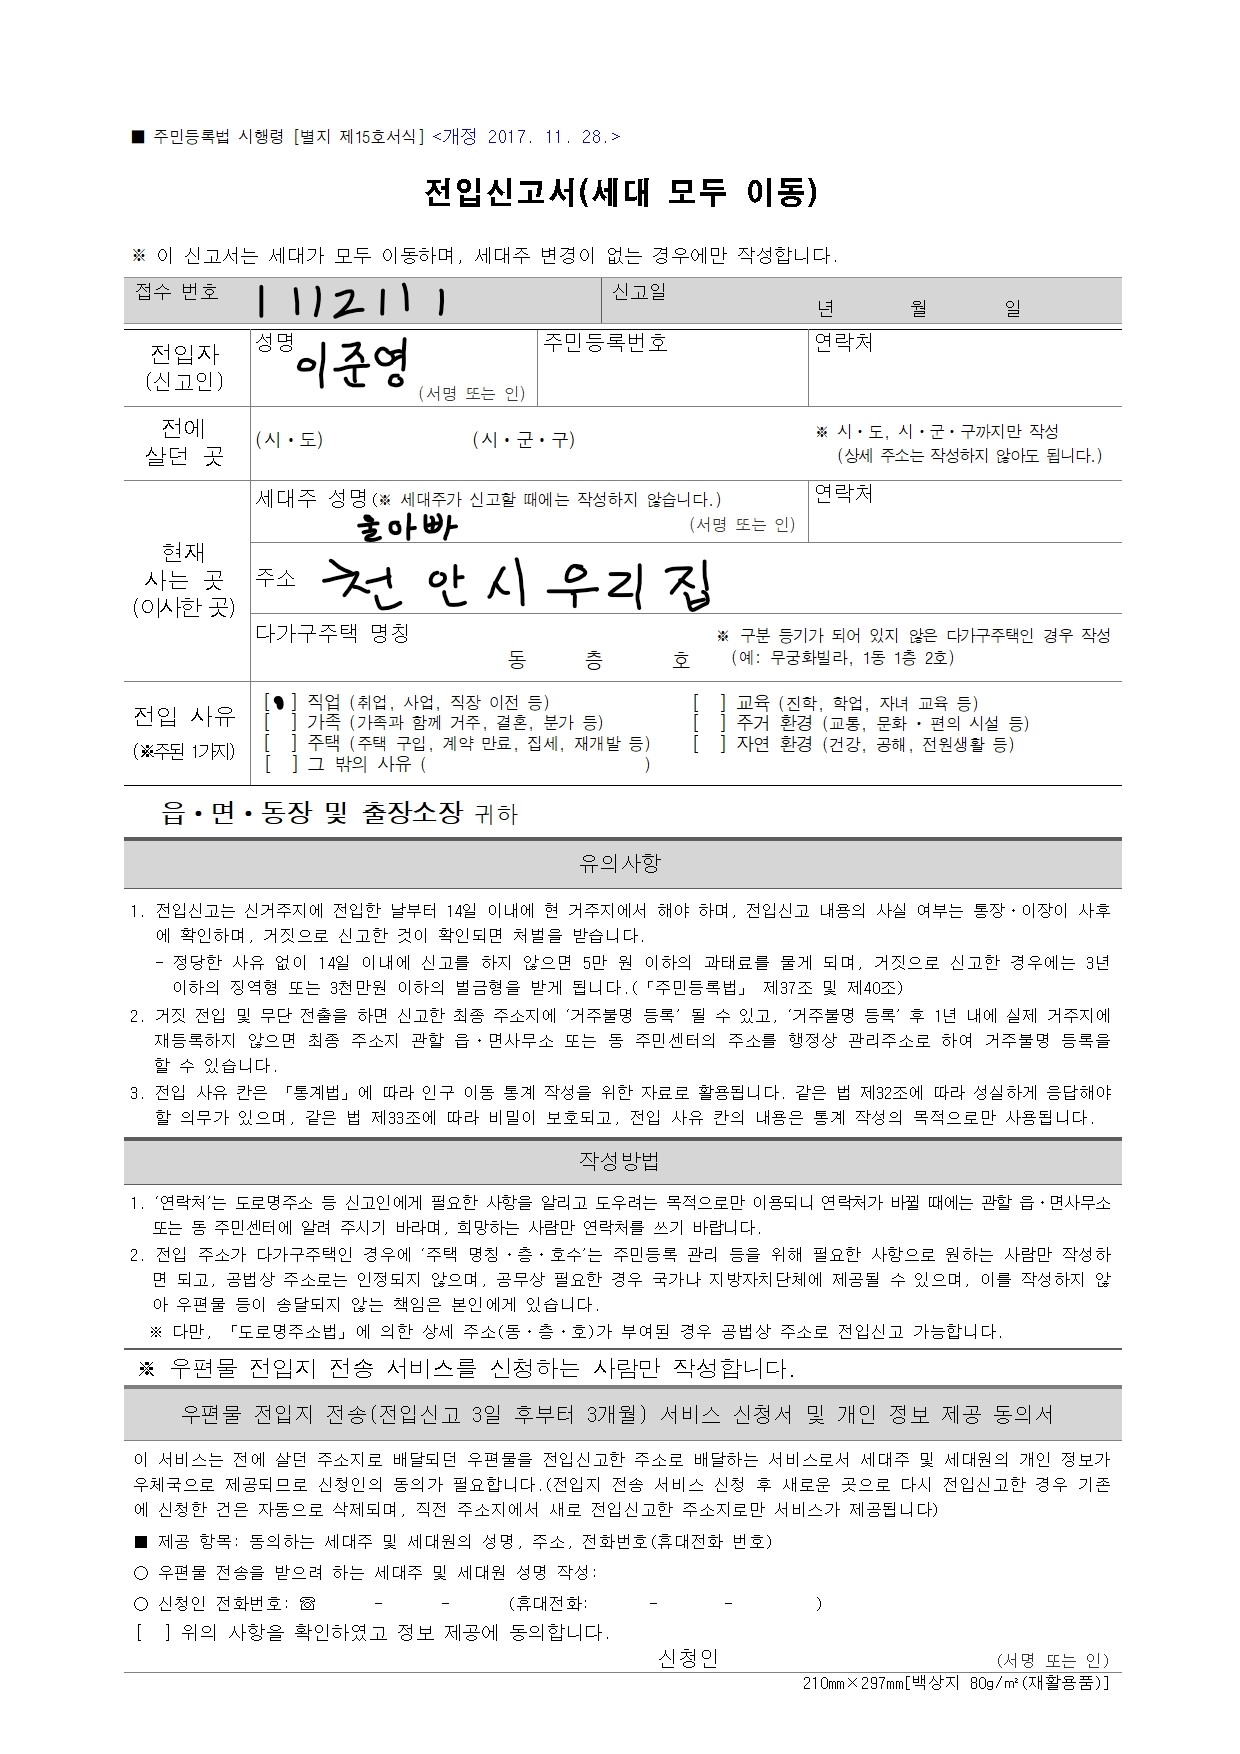 ■ 주민등록법 시행령 [별지 제15호서식] <개정 2017. 11. 28.>
전입신고서(세대 모두 이동)
※ 이 신고서는 세대가 모두 이동하며, 세대주 변경이 없는 경우에만 작성합니다.
접수 번호 1112111 신고일 년 월 일
전입자 (신고인) 성명 이준영 (서명 또는 인) 주민등록번호 연락처
전에 살던 곳 (시·도) (시·군·구) ※ 시·도, 시·군·구까지만 작성
(상세 주소는 작성하지 않아도 됩니다.)
현재 사는 곳 (이사한 곳) 세대주 성명(※ 세대주가 신고할 때에는 작성하지 않습니다.) 연락처
울아빠 (서명 또는 인)
주소 천안시우리집
다가구주택 명칭 ※ 구분 등기가 되어 있지 않은 다가구주택인 경우 작성
동 층 호 (예: 무궁화빌라, 1동 1층 2호)
전입 사유 (※주된 1가지)
[ ] 직업 (취업, 사업, 직장 이전 등) [ ] 교육 (진학, 학업, 자녀 교육 등)
[ ] 가족 (가족과 함께 거주, 결혼, 분가 등) [ ] 주거 환경 (교통, 문화·편의 시설 등)
[ ] 주택 (주택 구입, 계약 만료, 집세, 재개발 등) [ ] 자연 환경 (건강, 공해, 전원생활 등)
[ ] 그 밖의 사유 ( )
읍·면·동장 및 출장소장 귀하
유의사항
1. 전입신고는 신거주지에 전입한 날부터 14일 이내에 현 거주지에서 해야 하며, 전입신고 내용의 사실 여부는 통장·이장이 사후
에 확인하며, 거짓으로 신고한 것이 확인되면 처벌을 받습니다.
- 정당한 사유 없이 14일 이내에 신고를 하지 않으면 5만 원 이하의 과태료를 물게 되며, 거짓으로 신고한 경우에는 3년
이하의 징역형 또는 3천만원 이하의 벌금형을 받게 됩니다.(「주민등록법」 제37조 및 제40조)
2. 거짓 전입 및 무단 전출을 하면 신고한 최종 주소지에 '거주불명 등록' 될 수 있고, '거주불명 등록' 후 1년 내에 실제 거주지에
재등록하지 않으면 최종 주소지 관할 읍·면사무소 또는 동 주민센터의 주소를 행정상 관리주소로 하여 거주불명 등록을
할 수 있습니다.
3. 전입 사유 칸은 「통계법」에 따라 인구 이동 통계 작성을 위한 자료로 활용됩니다. 같은 법 제32조에 따라 성실하게 응답해야
할 의무가 있으며, 같은 법 제33조에 따라 비밀이 보호되고, 전입 사유 칸의 내용은 통계 작성의 목적으로만 사용됩니다.
작성방법
1. '연락처'는 도로명주소 등 신고인에게 필요한 사항을 알리고 도우려는 목적으로만 이용되니 연락처가 바뀔 때에는 관할 읍·면사무소
또는 동 주민센터에 알려 주시기 바라며, 희망하는 사람만 연락처를 쓰기 바랍니다.
2. 전입 주소가 다가구주택인 경우에 '주택 명칭·층·호수'는 주민등록 관리 등을 위해 필요한 사항으로 원하는 사람만 작성하
면 되고, 공법상 주소로는 인정되지 않으며, 공무상 필요한 경우 국가나 지방자치단체에 제공될 수 있으며, 이를 작성하지 않
아 우편물 등이 송달되지 않는 책임은 본인에게 있습니다.
※ 다만, 「도로명주소법」에 의한 상세 주소(동·층·호)가 부여된 경우 공법상 주소로 전입신고 가능합니다.
※ 우편물 전입지 전송 서비스를 신청하는 사람만 작성합니다.
우편물 전입지 전송(전입신고 3일 후부터 3개월) 서비스 신청서 및 개인 정보 제공 동의서
이 서비스는 전에 살던 주소지로 배달되던 우편물을 전입신고한 주소로 배달하는 서비스로서 세대주 및 세대원의 개인 정보가
우체국으로 제공되므로 신청인의 동의가 필요합니다.(전입지 전송 서비스 신청 후 새로운 곳으로 다시 전입신고한 경우 기존
에 신청한 건은 자동으로 삭제되며, 직전 주소지에서 새로 전입신고한 주소지로만 서비스가 제공됩니다)
■ 제공 항목: 동의하는 세대주 및 세대원의 성명, 주소, 전화번호(휴대전화 번호)
○ 우편물 전송을 받으려 하는 세대주 및 세대원 성명 작성:
○ 신청인 전화번호: ☏ - - (휴대전화: - - )
[ ] 위의 사항을 확인하였고 정보 제공에 동의합니다.
신청인 (서명 또는 인)
210㎜×297㎜[백상지 80g/㎡(재활용품)]